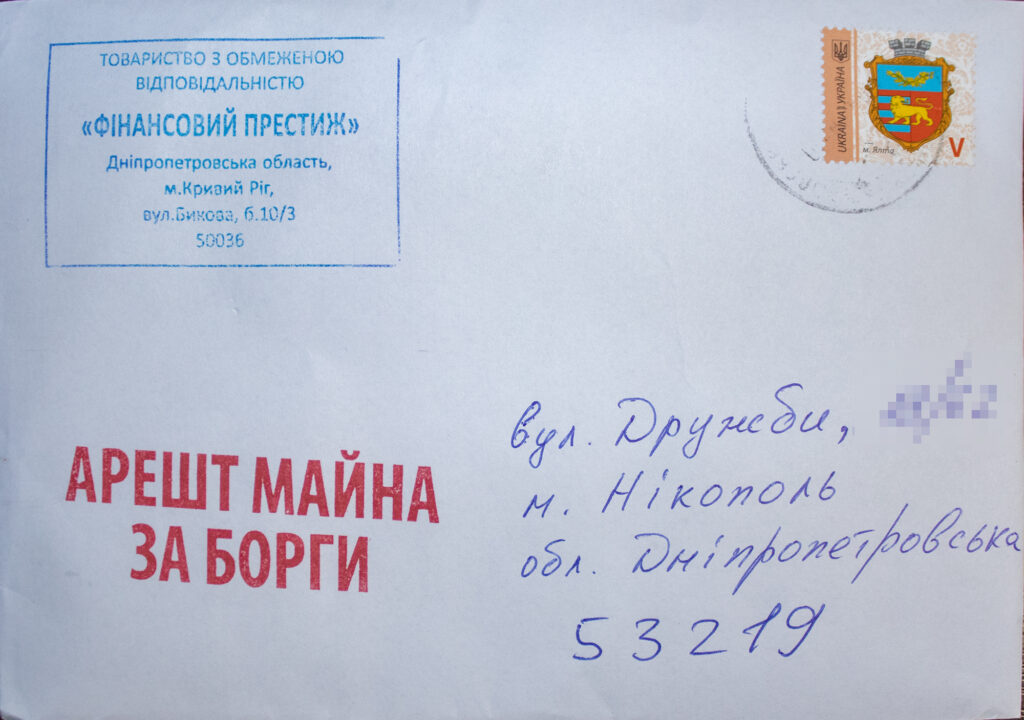 ТОВАРИСТВО З ОБМЕЖЕНОЮ
ВІДПОВІДАЛЬНІСТЮ
«ФІНАНСОВИЙ ПРЕСТИЖ»
Дніпропетровська область,
м.Кривий Ріг,
вул.Бикова, б.10/3
50036
UKRAINA УКРАЇНА
м. Ялта
V
вул. Дружби,
м. Нікополь
обл. Дніпропетровська
53219
АРЕШТ МАЙНА
ЗА БОРГИ